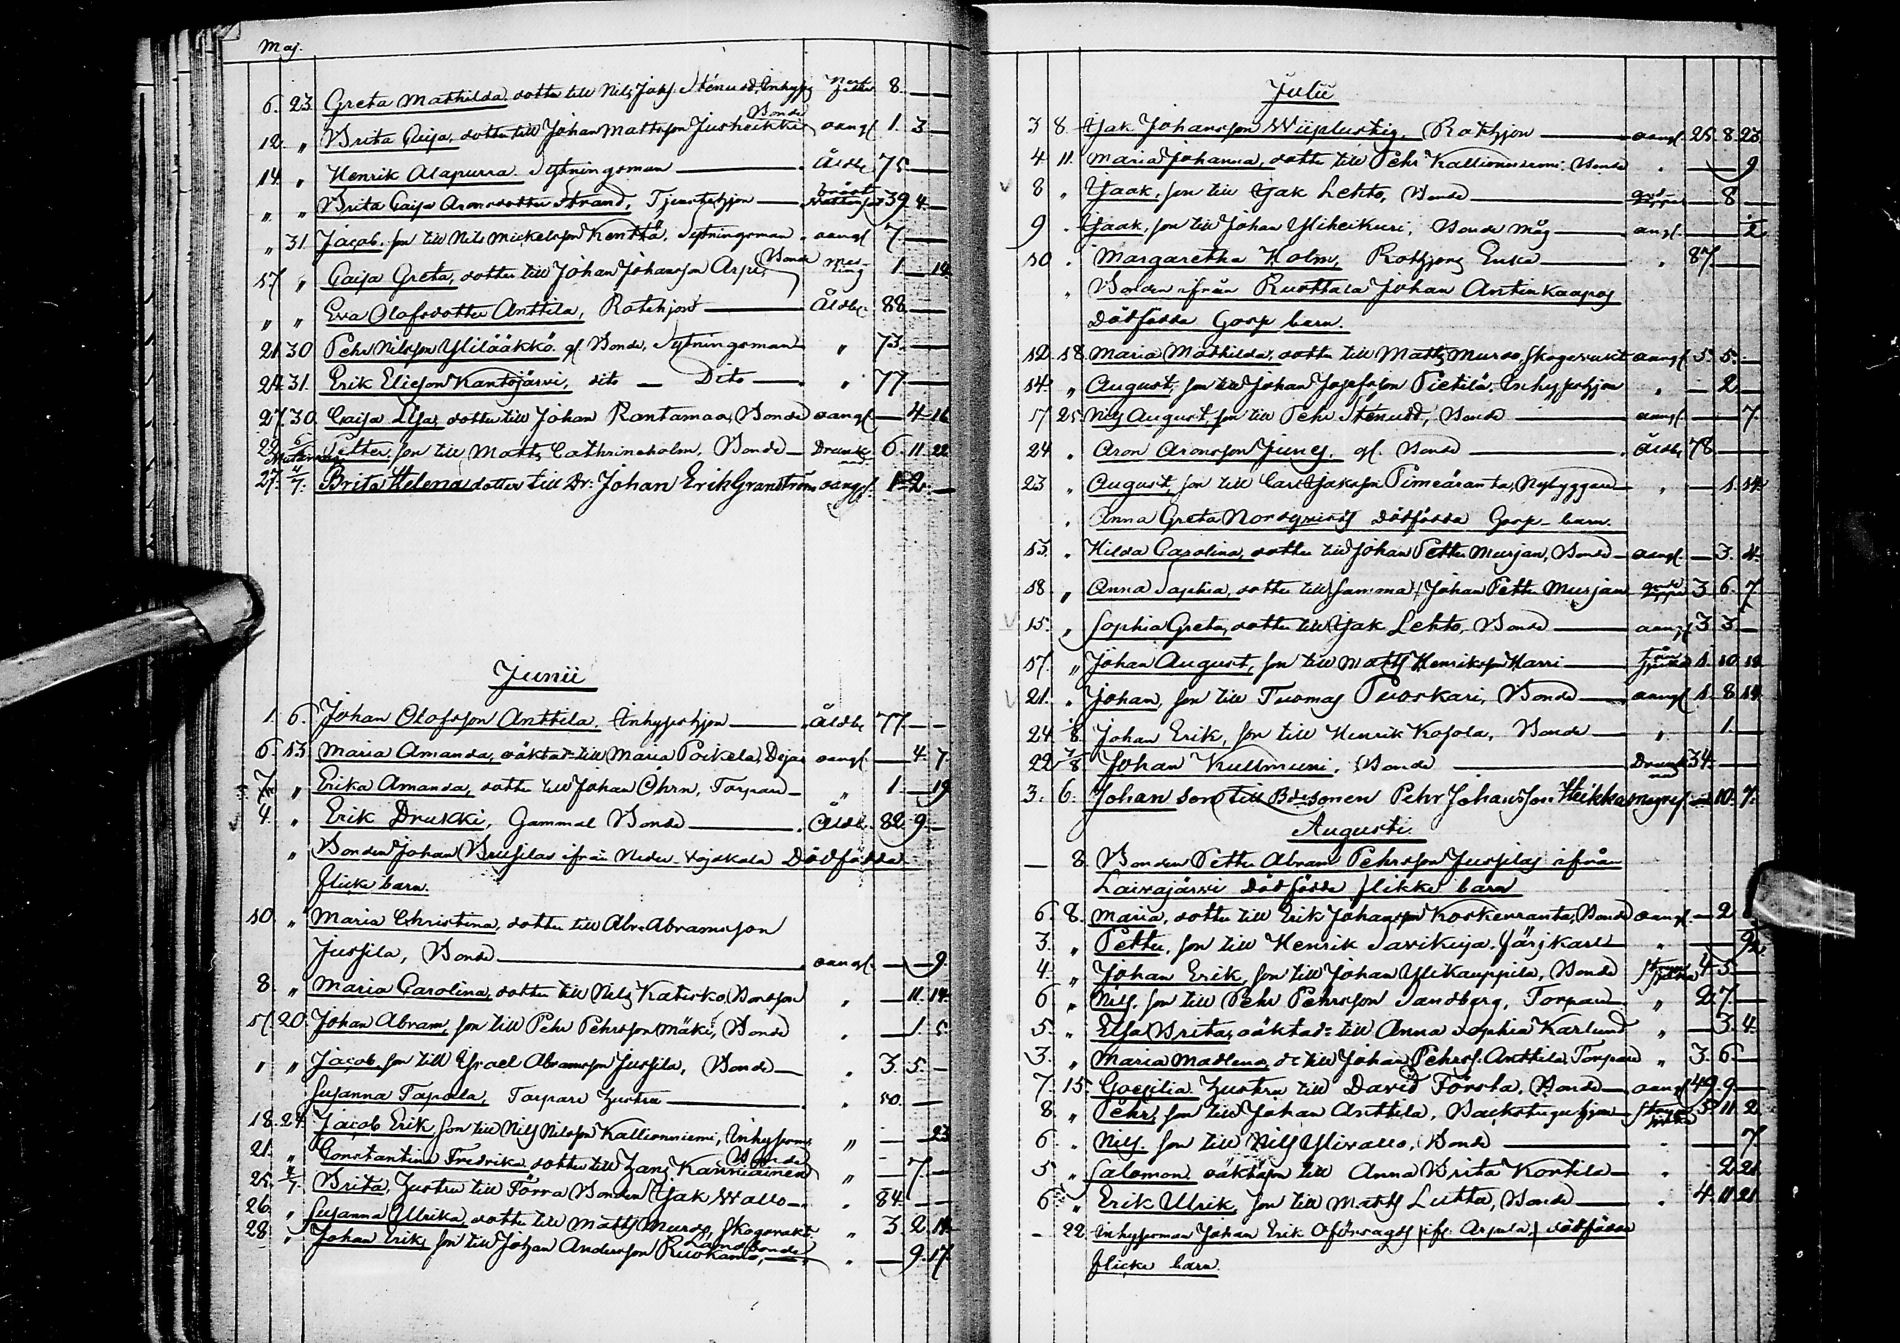 Maj.
6. 23. Greta Mathilda, dotter till Nils Joh: Stenudd, Inhyss 8. —
Bonde
12. " Brita Caisa, dotter till Johan Mattsson Juskeikki aangf. 1. 3. —
14. " Henrik Alapurra. Sytningsman — Åldd. 75. —
" " Brita Caisa Aronsdotter Strand, Tjenstehjon — bröst 39 4. —
" 31. Jacob, son till Nils Mickelsson Kenttä, Sytningsman. aangf. 7. —
Bonde
17. " Caisa Greta, dotter till Johan Johansson Arpi, 1. — 14.
" " Eva Olofsdotter Anttila, Rotehjon — Åldd. 88. —
21. 30. Pehr Nilsson Ylilääkkö. gl. Bonde, Sytningsman " 73. —
24. 31. Erik Ericson Kantojärvi, dito — Dito — " 77 —
27. 30. Caisa Lisa, dotter till Johan Rantamaa, Bonde aangf. — 4. 16
22. 6/ Petter, son till Matts Cathrineholm, Bonde — Drunk- 6. 11. 22
27. 4/7. Brita Helena dotter till Dr: Johan Erik Granström aangf. 1. 2. —
Junii
1. 6. Johan Olofsson Anttila, Inhyseshjon — Åldd. 77. —
6. 13. Maria Amanda, oäkta dr till Maria Poikela, Deja aangf. — 4. 7
7. " Erika Amanda, dotter till Johan Ohrn, Torpare — " 1. — 19
4. " Erik Drukki, Gammal Bonde — Åldd. 82. 9. —
" Bonden Johan Brusilas ifrån Neder Vojakala Dödfödda
flicke barn.
10. " Maria Christina, dotter till Abr: Abramsson
Jussila, Bonde — aangf. — — 9.
8. " Maria Carolina, dotter till Nils Katisko, Bondson " — 11. 14.
17. 20. Johan Abram, son till Pehr Pehrsson Mäki, Bonde " — 1. 5.
" " Jacob, son till Israel Abramsson Jussila, Bonde — " 3. 5. —
Susanna Tapola, Torpare Hustru — " 50. —
18. 24. Jacob Erik, son till Nils Nilsson Kallioinniemi, Inhyses " — — 23
Bonde
21. " Constantina Fredrika, dotter till Hans Kanniainen " — 7. —
25. 4/7 Brita, Hustru till Förra Bonden Isak Wallo — " 84. —
26. " Susanna Ulrika, dotter till Matts Murso, Skogsvakt. " 3. 2. 14.
Landbonde
28. " Johan Erik, son till Johan Andersson Ruokamo, — " — 9. 17.
Julii
3. 8. Isak Johansson Wiiplustig. Rotehjon — aangf. 25. 8. 23.
4. 11. Maria Johanna, dotter till Pehr Kallioinniemi. Bonde " — — 9
8 " Isaak, son till Isak Lehto, Bonde — — 8 —
9. " Isaak, son till Johan Yliheikuri, Bonde Måg — angf. — — 1/2
10. " Margaretha Holm, Rotehjons Enka — " 87. —
" Bonden ifrån Ruottala Johan Antinkaapos
Dödfödda Gosse barn.
12. 18. Maria Mathilda, dotter till Matts Murso, Skogsvakt aangf. 5. 5. —
14. " August, son till Johan Josefsson Pietilä, Inhyseshjon " — 2. —
17. 25. Nils August, son till Pehr Stenudd, Bonde — aangf. — — 7.
24. " Aron Aronsson Juneg. gl. Bonde — Åldd. 78. —
23. " August, son till Carl Isaksson Pirneäranta, Nybyggare — " — 1. 14.
" Anna Greta Nordqvists Dödfödda Gosse barn.
13. " Hilda Carolina, dotter till Johan Petter Murjan, Bonde — aangf. — 3. 4.
18. " Anna Sophia, dotter till samma Johan Petter Murjan 3. 6. 7.
15. " Sophia Greta, dotter till Isak Lehto, Bonde — aangf. 3. 3. —
17. " Johan August, son till Matts Henriksson Harri — 1. 10. 12
21. " Johan, son till Tuomas Puoskari, Bonde — aangf. 1. 8. 14.
24. /8. Johan Erik, son till Henrik Kosola, Bonde — " — 1. —
22. 7/8 Johan Kullmuni, Bonde — Drunk- 34. —
3. 6. Johan son till Bdesonen Pehr Johansson Heikka — 10. 7.
Augusti
— 8. Bonden Petter Abram Pehrsson Jussilas ifrån
Laivajärvi Dödfödda flicke barn
6. 8. Maria, dotter till Erik Johansson Koskenranta, Bonde aangf. — 2.
3. " Petter, son till Henrik Savikuja. Färjkarl — " — — 9/12
4. " Johan Erik, son till Johan Ylikauppila, Bonde 4. 5. —
6. " Nils, son till Pehr Pehrsson Sandberg, Torpare — " 2. 7. —
5. " Elsa Brita, oäkta dr till Anna Sophia Karlund " — 3. 4.
3. " Maria Madlena, dr till Johan Pehrss. Anttila Torpare " 3. 6. —
7. 15. Caecilia Hustru till David Förskt, Bonde — aangf. 49. 9. —
8. " Pehr, son till Johan Anttila, Backstuguhjon — 5. 11. 2.
6. " Nils, son till Nils Ylivallo, Bonde — " — — 7.
5. " Salomon, oäkta son till Anna Brita Kortila — " — 2. 21.
6. " Erik Ulrik, son till Matts Luttu, Bonde — " 4. 11. 21.
— 22. Inhysesman Johan Erik Oförsagds ifr. Arpela dödfödda
flicke barn.